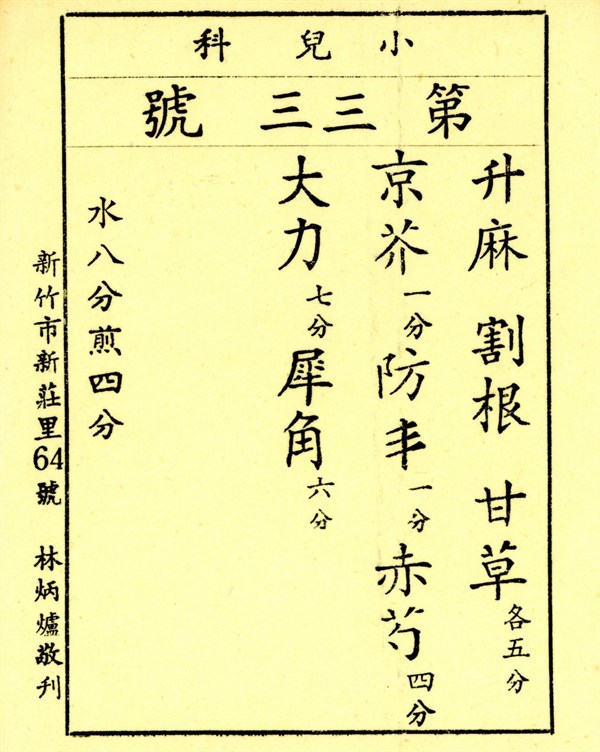 小兒科
第三三號
升麻 割根 甘草各五分
京芥一分防丰一分赤芍四分
大力七分犀角六分
水八分煎四分
新竹市新莊里64號 林炳爐敬刋